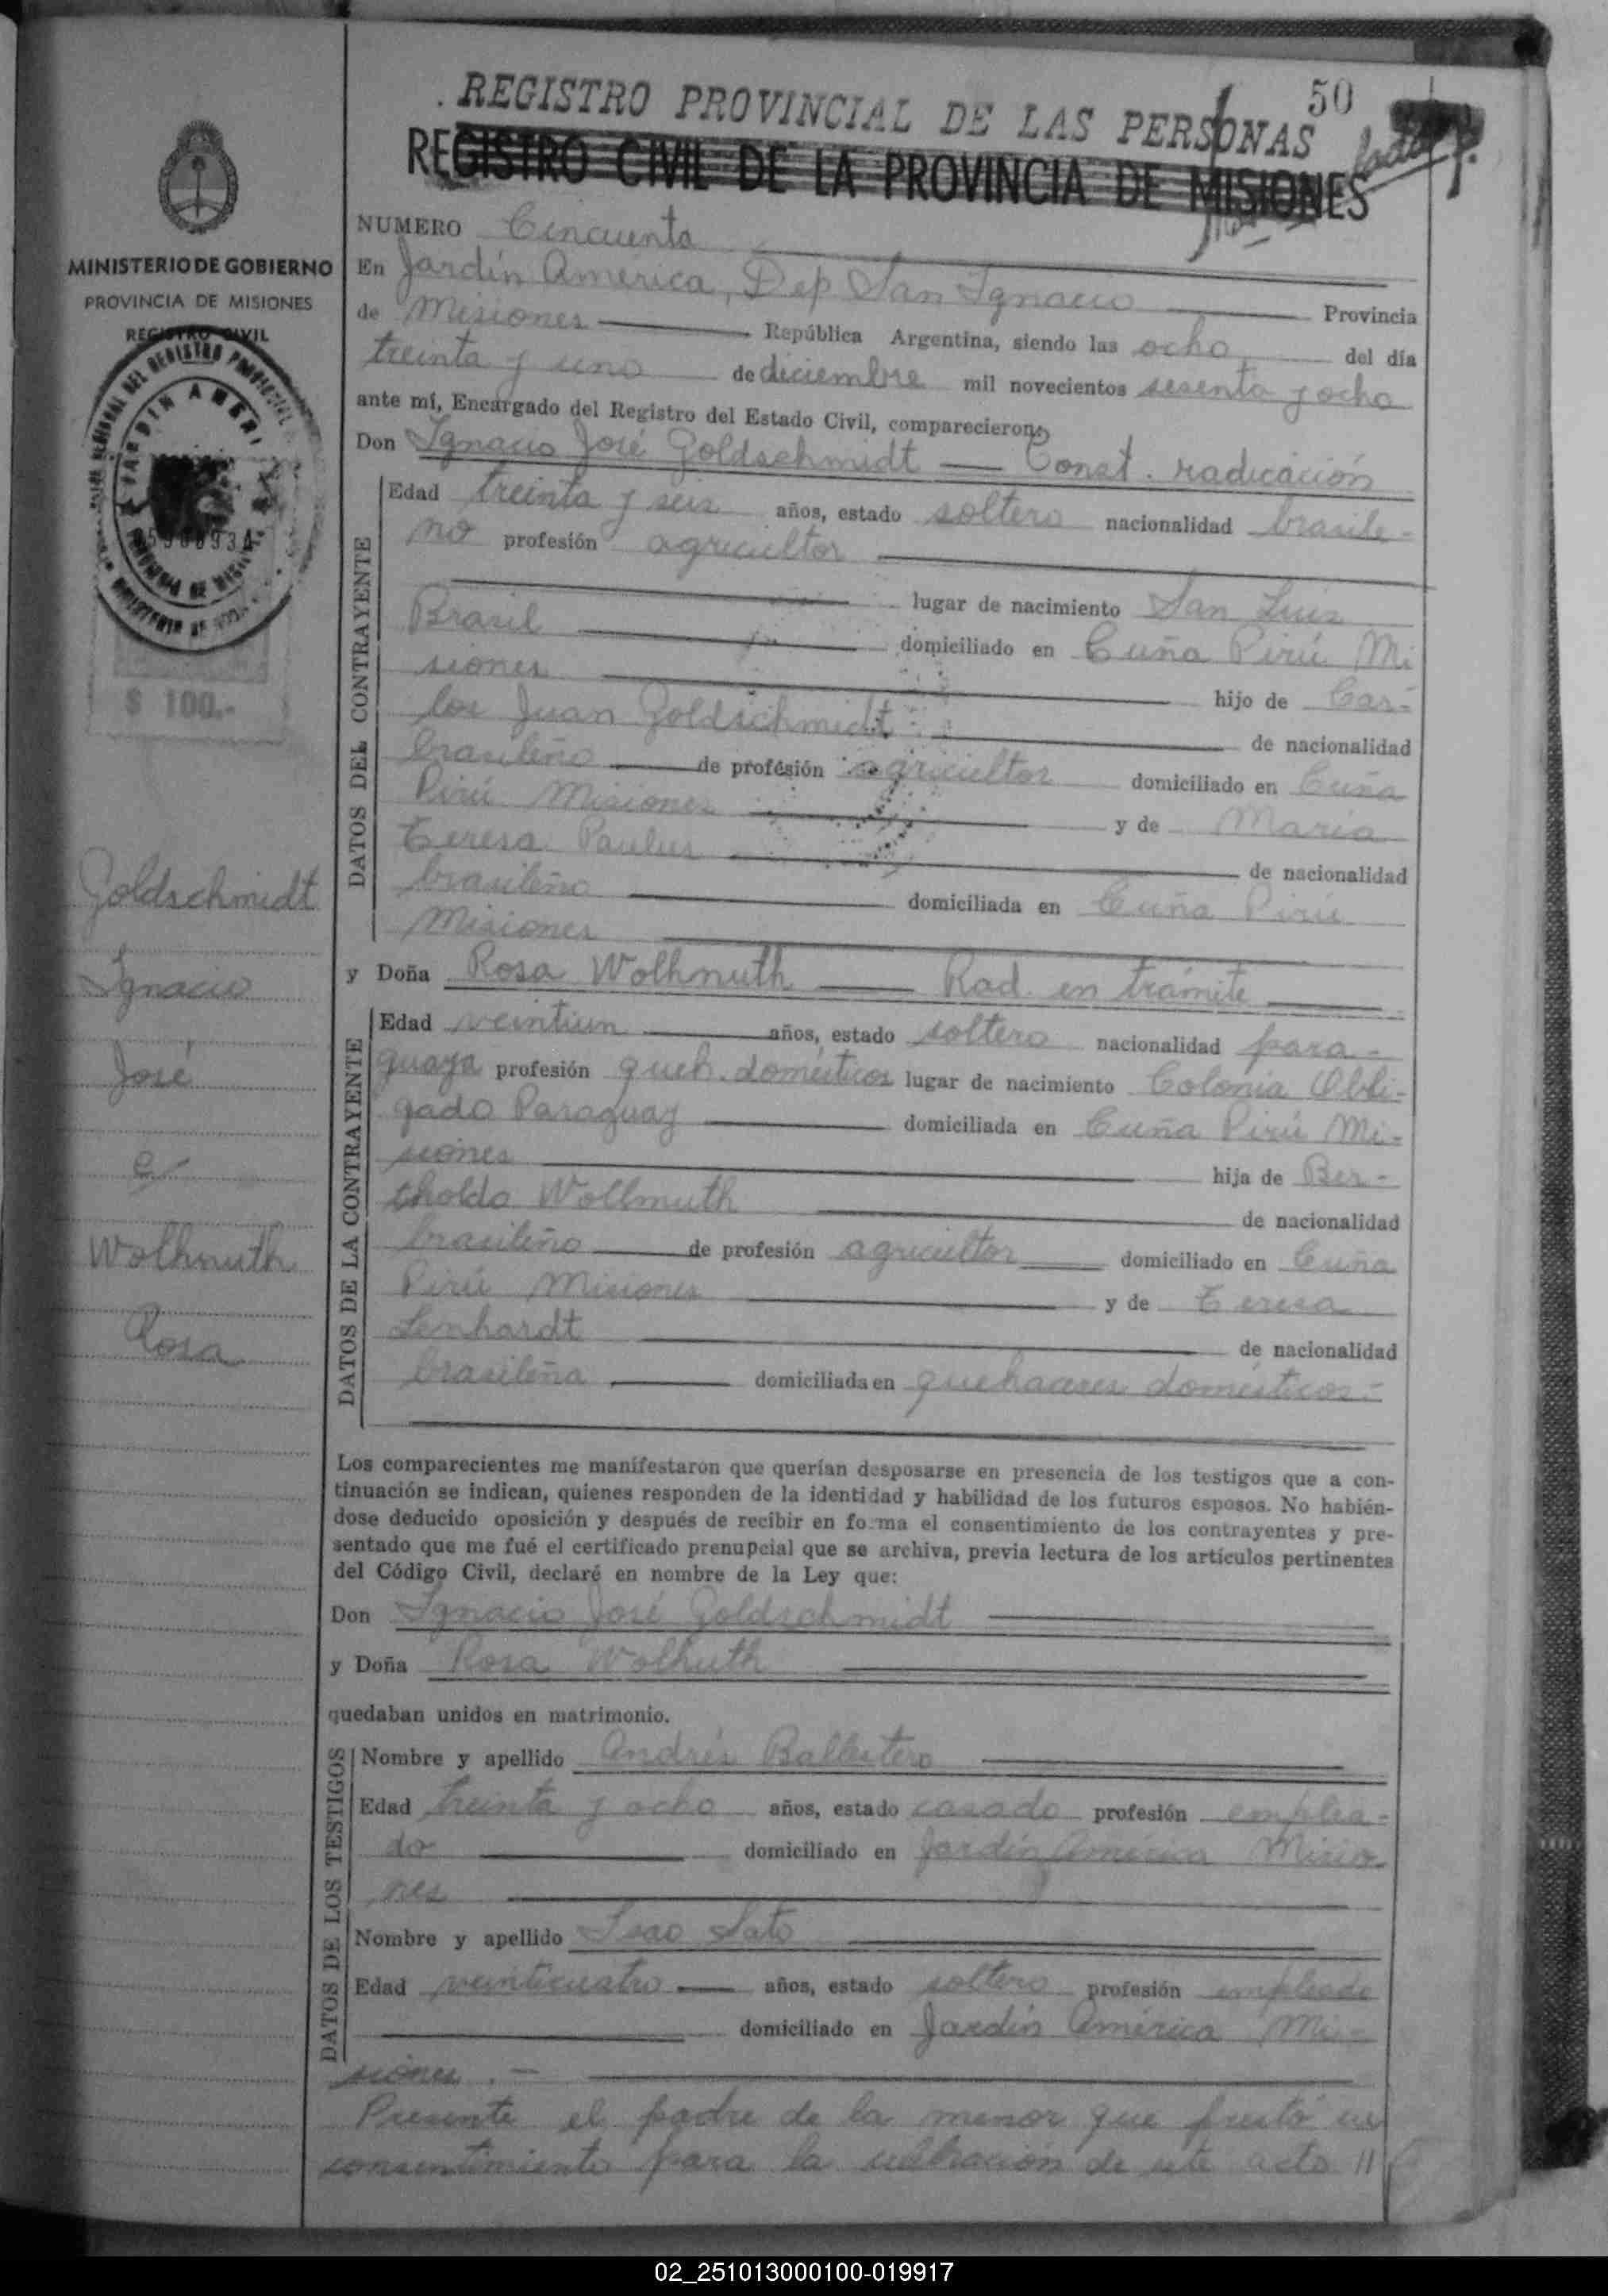 50
REGISTRO PROVINCIAL DE LAS PERSONAS
REGISTRO CIVIL DE LA PROVINCIA DE MISIONES
MINISTERIO DE GOBIERNO
PROVINCIA DE MISIONES
REGISTRO CIVIL
$ 100.-
Goldschmidt
Ignacio
José
e
Wolhnuth
Rosa
NUMERO Cincuenta
En Jardín América, Dep San Ignacio Provincia
de Misiones República Argentina, siendo las ocho del día
treinta y uno de diciembre mil novecientos sesenta y ocho
ante mí, Encargado del Registro del Estado Civil, comparecieron
Don Ignacio José Goldschmidt — Const. radicación
DATOS DEL CONTRAYENTE
Edad treinta y seis años, estado soltero nacionalidad brasile-
no profesión agricultor
lugar de nacimiento San Luis
Brasil domiciliado en Cuña Pirú Mi
siones hijo de Car-
los Juan Goldschmidt de nacionalidad
brasileño de profesión agricultor domiciliado en Cuña
Pirú Misiones y de María
Teresa Paulus de nacionalidad
brasileño domiciliada en Cuña Pirú
Misiones
y Doña Rosa Wolhnuth — Rad. en trámite
DATOS DE LA CONTRAYENTE
Edad veintiun años, estado soltera nacionalidad para-
guaya profesión queh. domésticos lugar de nacimiento Colonia Obli-
gado Paraguay domiciliada en Cuña Pirú Mi-
siones hija de Ber-
tholdo Wollmuth de nacionalidad
brasileño de profesión agricultor domiciliado en Cuña
Pirú Misiones y de Teresa
Lenhardt de nacionalidad
brasileña domiciliada en quehaceres domésticos-
Los comparecientes me manifestaron que querían desposarse en presencia de los testigos que a con-
tinuación se indican, quienes responden de la identidad y habilidad de los futuros esposos. No habién-
dose deducido oposición y después de recibir en forma el consentimiento de los contrayentes y pre-
sentado que me fué el certificado prenupcial que se archiva, previa lectura de los artículos pertinentes
del Código Civil, declaré en nombre de la Ley que:
Don Ignacio José Goldschmidt
y Doña Rosa Wolhuth
quedaban unidos en matrimonio.
DATOS DE LOS TESTIGOS
Nombre y apellido Andrés Ballestero
Edad treinta y ocho años, estado casado profesión emplea-
do domiciliado en Jardín América Misio
nes
Nombre y apellido Isao Sato
Edad veinticuatro años, estado soltero profesión empleado
domiciliado en Jardín América Mi-
siones.-
Presente el padre de la menor que prestó su
consentimiento para la celebración de este acto //
02_251013000100-019917